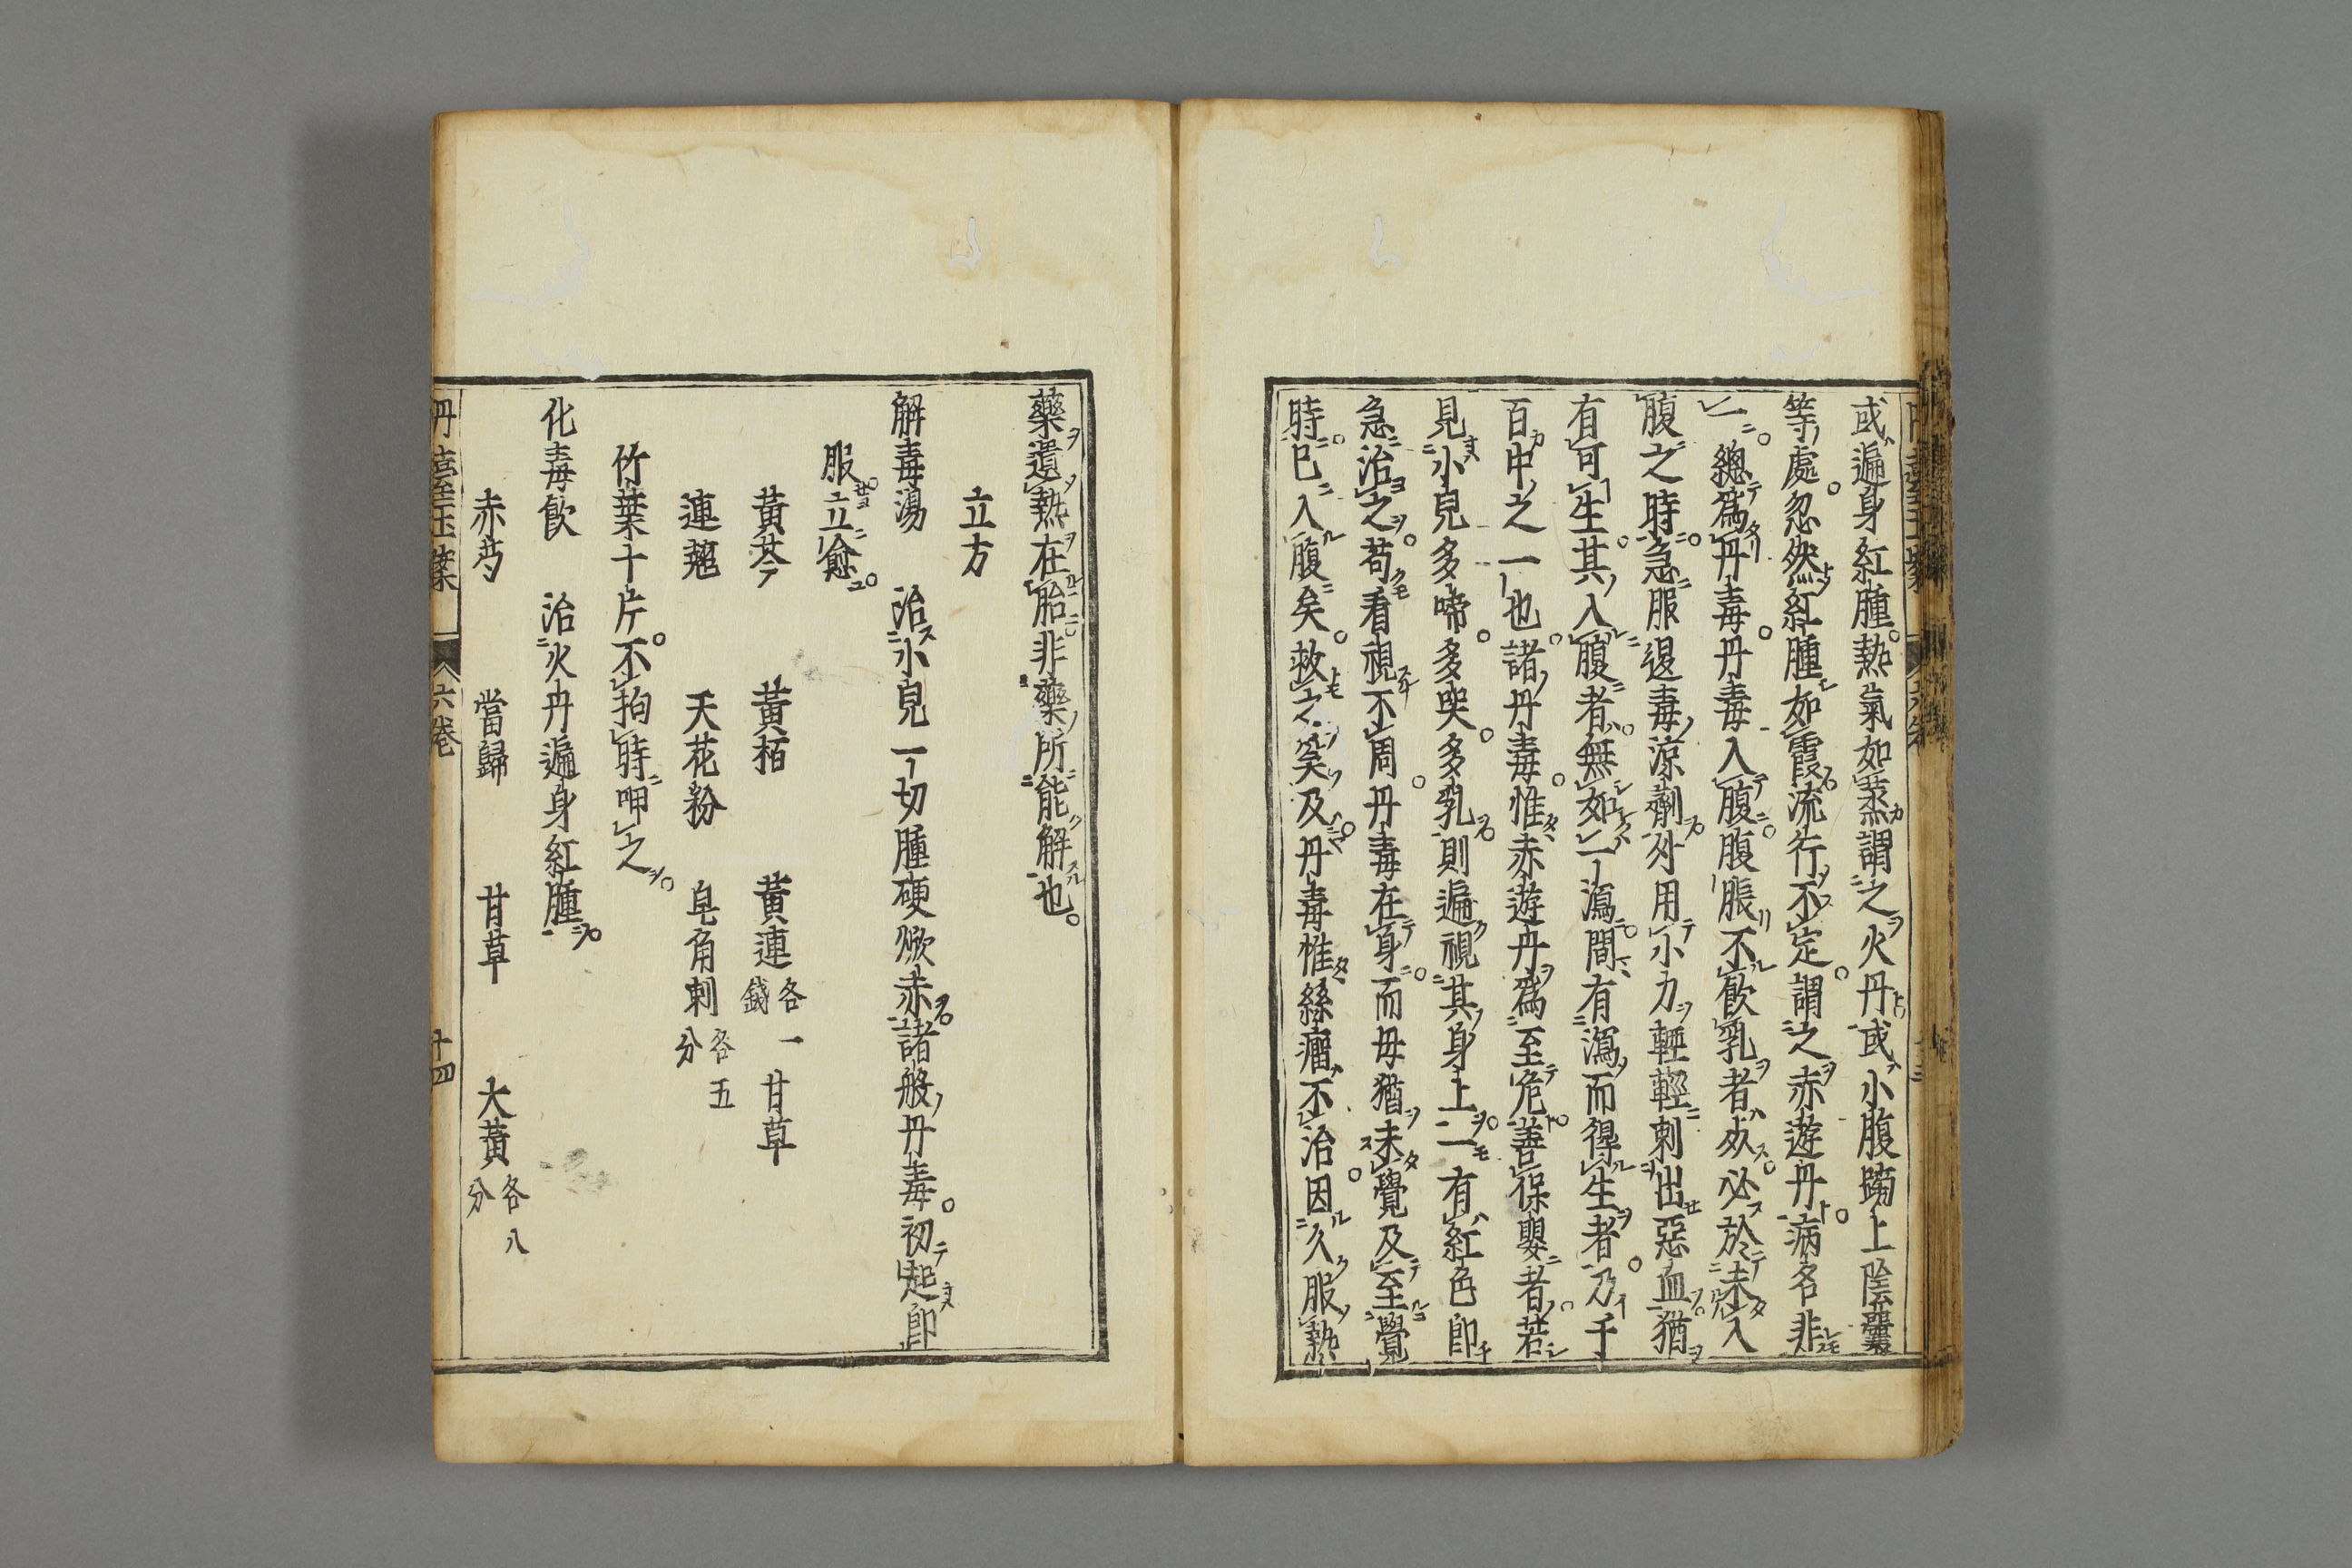 或遍身紅腫熱氣如蒸謂之火丹或小腹踻上陰囊
等處忽然紅腫如霞流行不定謂之赤遊丹病名非
一總爲丹毒丹毒入腹腹脹不飮乳者必於未入
腹之時急服退毒涼劑外用小刀輕輕刺出惡血猶
有可生其入腹者無如一瀉間有瀉而得生者乃千
百中之一也諸丹毒惟赤遊丹爲至危善保嬰者若
見小兒多啼多哭多乳則遍視其身上一有紅色卽
急治之苟看視不周丹毒在身而毋猶未覺及至覺
時已入腹矣救之奚及丹毒惟絲瘤不治因久服熱
藥遺熱在胎非藥所能解也
立方
解毒湯 治小兒一切腫硬焮赤諸般丹毒初起卽
服立愈
黃芩 黃栢 黃連各一錢 甘草
連翹 天花粉 皂角刺各五分
竹葉十片不拘時呷之
化毒飮 治火丹遍身紅腫
赤芍 當歸 甘草 大黃各八分
六卷
十四